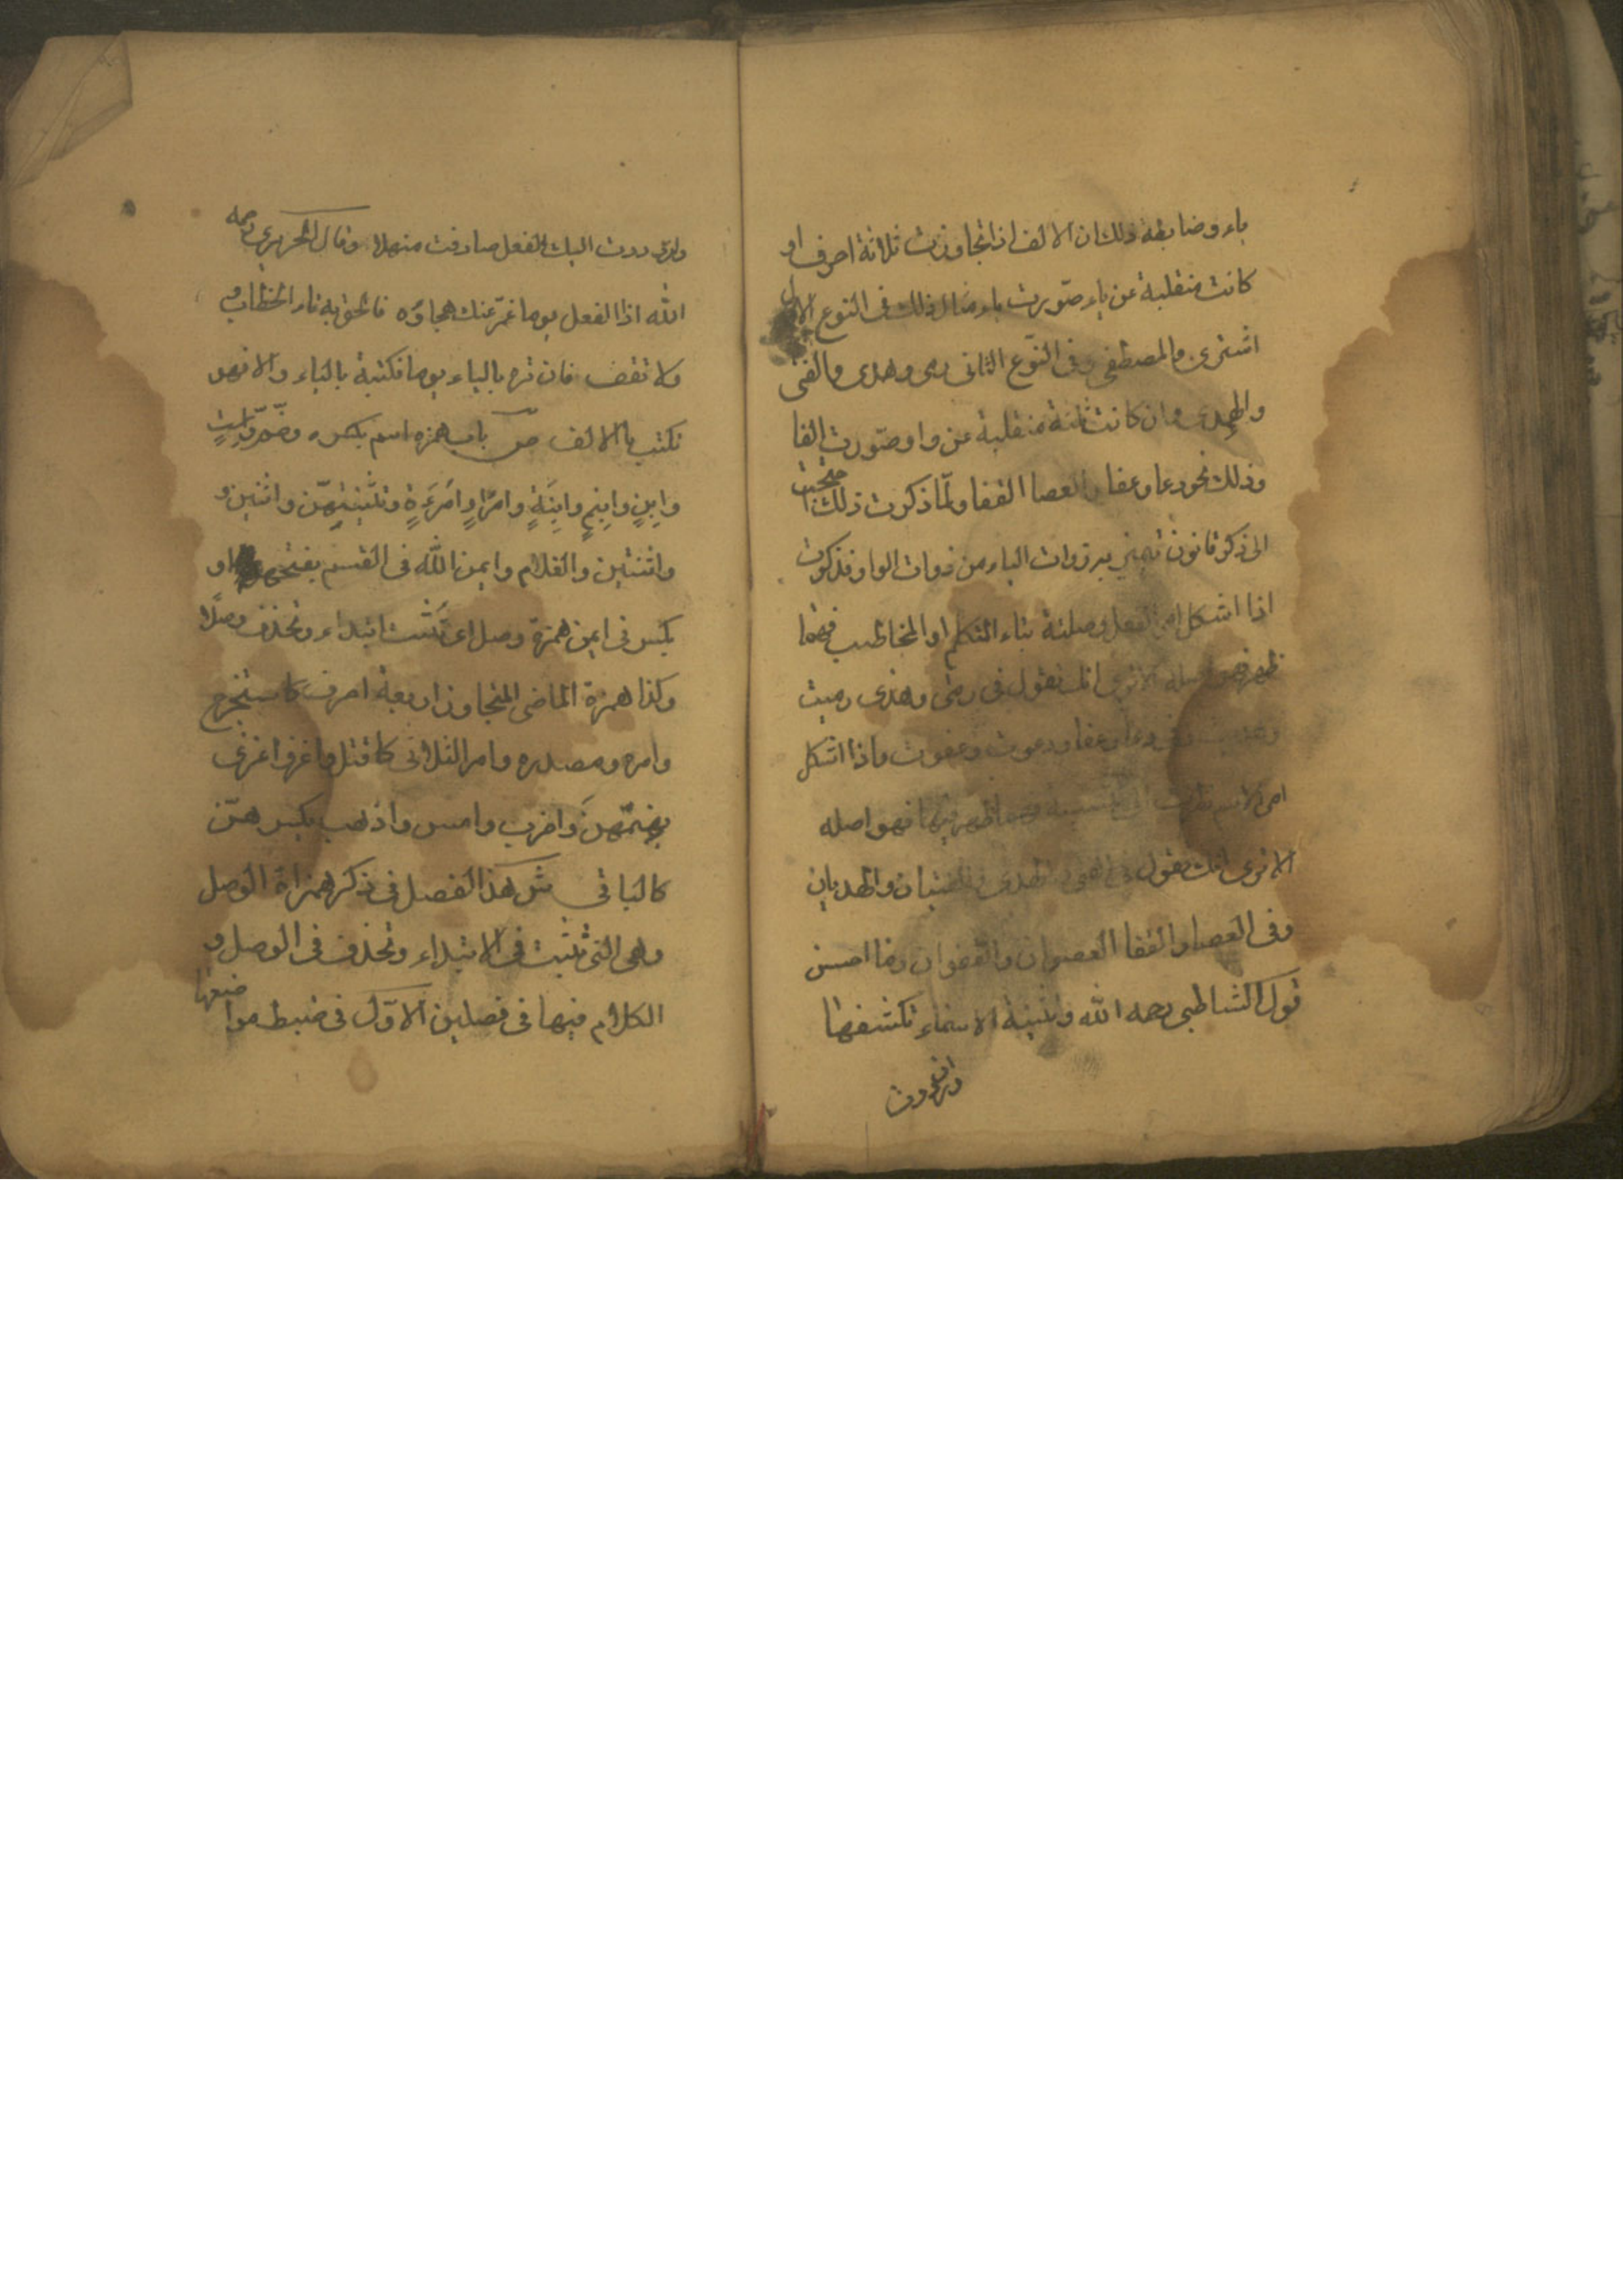 ياء وضابطة ذلك ان الالف اذا تجاوزت ثلاثة احرف او
كانت منقلبة عن ياء صوّرت ياء مثال ذلك في النوع الاول
اشترى والمصطفى وفي النّوع الثاني رمى وهدى والفتى
والهدى وان كانت ثالثة منقلبة عن واو صوّرت الفا
وذلك نحو دعا وعفا والعصا القفا ولمّا ذكرت ذلك احتجت
الى ذكر قانون تميز به ذوات الياء من ذوات الواو فذكرت
اذا اشكل امر الفعل وصلته بتاء التكلم او المخاطب فمهما
ظهر فهو اصله الا ترى انك تقول في رمى وهدى رميت
وهديت وفي دعا وعفا ودعوت وعفوت واذا اشكل
امر الاسم نظرت الى تثنيته فمهما ظهر فيها فهو اصله
الا ترى انك تقول في الفتى والهدى الفتيان والهديان
وفي العصا والقفا العصوان والقفوان وما احسن
قول الشاطبي رحمه الله وتثنية الاسماء تكشفها
وان رددت
وان رددت اليك الفعل صادفت منهلا وقال الحريري رحمه
الله اذا الفعل يوما غمّ عنك هجاؤه فالحق به تاء الخطاب و
ولا تقف فان تره بالياء يوما فكتبه بالياء والا فهو
تكتب بالالف ص باب همزه اسم بكسره وضمّ واستٍ
وابنٍ وابنمٍ وابنةٍ وامرئٍ وامرءةٍ وتثنيتهنّ واثنين و
واثنتين والغلام وايمن الله في القسم بفتحهما او
بكسر في ايمن همزة وصل اي تثبت ابتداء وتحذف وصلًا
وكذا همزة الماضي المتجاوز اربعة احرف كاستخرج
وامره ومصدره وامر الثلاثي كاقتل واغز واغزي
بضمّهنّ واضرب وامس واذهب بكسرهنّ
كالباقي ش هذا الفصل في ذكر همزاة الوصل
وهي التي تثبت في الابتداء وتحذف في الوصل و
الكلام فيها في فصلين الاوّل في ضبط مواضعها